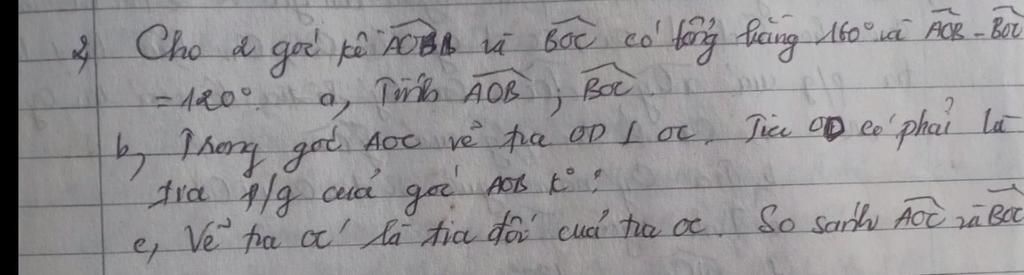 2, Cho 2 góc kề AOB và BOC có tổng bằng 160° và AOB - BOC
= 120°. a, Tính AOB ; BOC
b, Trong góc AOC vẽ tia OD ⊥ OC. Tia OD có phải là
tia p/g của góc AOB k° ?
c, Vẽ tia OC' là tia đối của tia OC. So sánh AOC và BOC